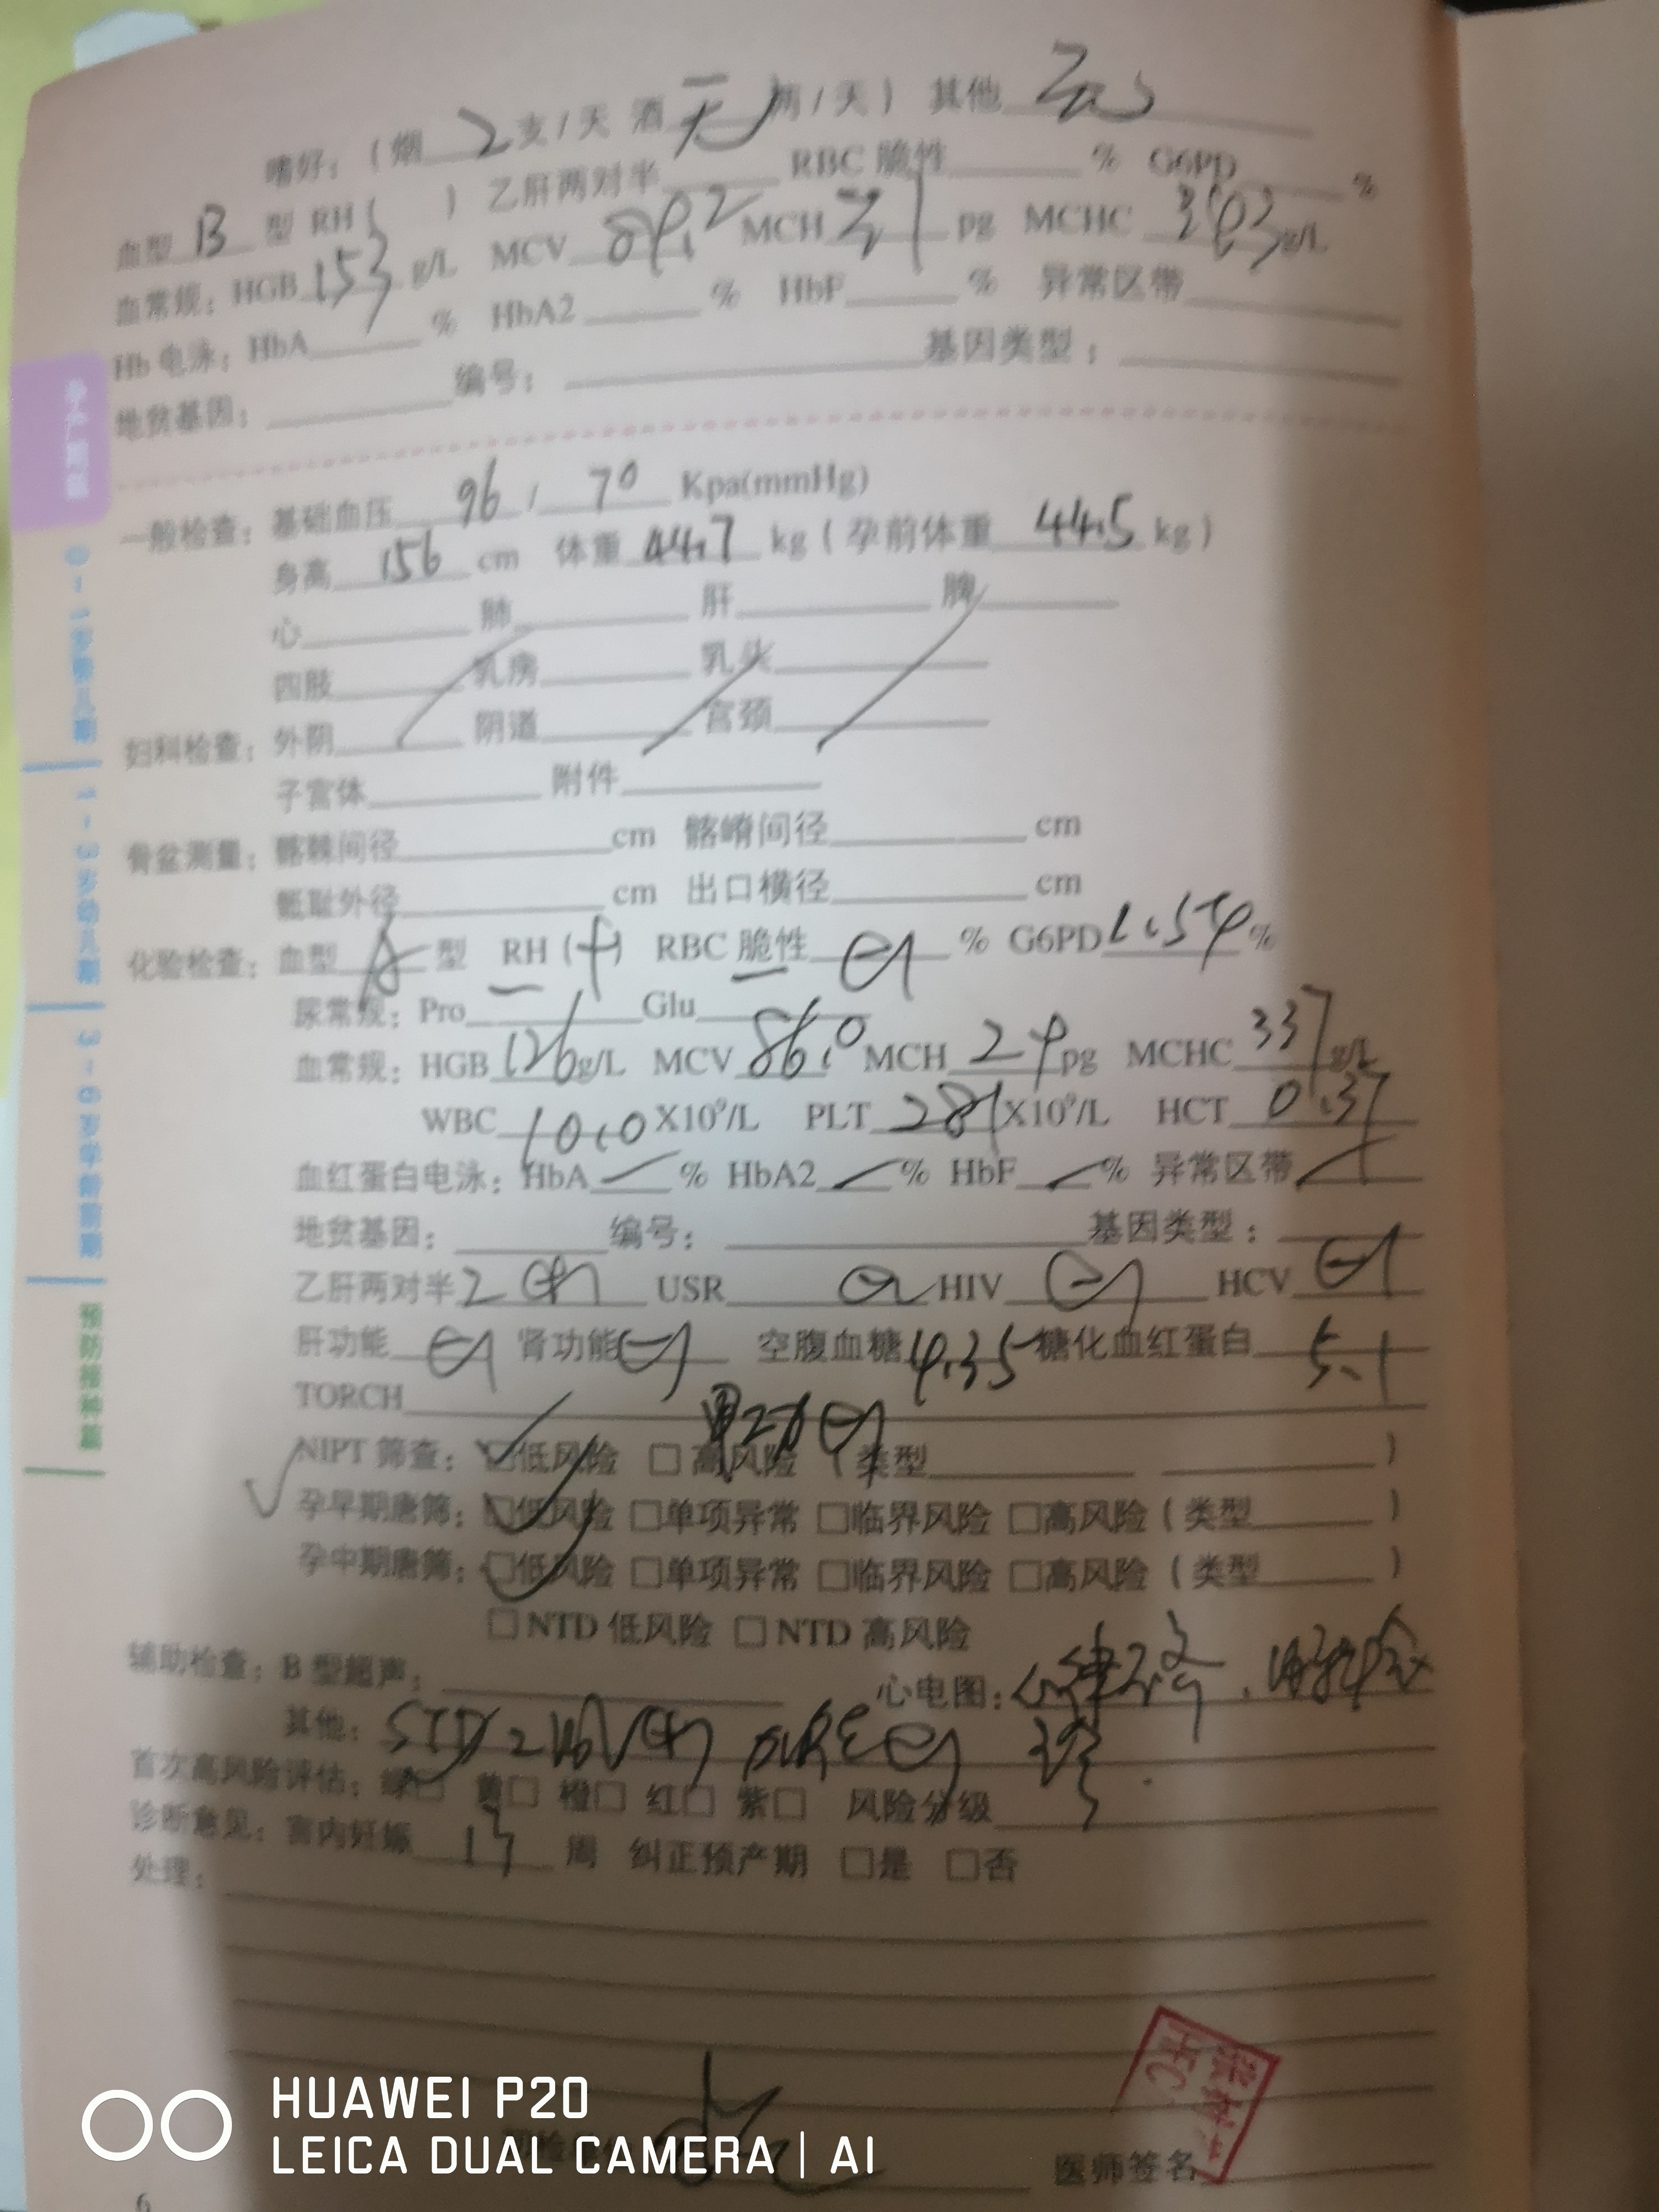 嗜好：（烟 2 支/天 酒 无 两/天） 其他
血型 B 型 RH（ ） 乙肝两对半 RBC 脆性 % G6PD %
血常规：HGB 153 g/L MCV 89.2 MCH 31 pg MCHC g/L
Hb 电泳：HbA % HbA2 % HbF % 异常区带
地贫基因： 编号： 基因类型：
一般检查：基础血压 96 / 70 Kpa(mmHg)
身高 156 cm 体重 44.7 kg（孕前体重 44.5 kg）
心 肺 肝 脾
四肢 乳房 乳头
妇科检查：外阴 阴道 宫颈
子宫体 附件
骨盆测量：髂棘间径 cm 髂嵴间径 cm
骶耻外径 cm 出口横径 cm
化验检查：血型 A 型 RH (+) RBC 脆性 (-) % G6PD %
尿常规：Pro Glu
血常规：HGB 126 g/L MCV 86.0 MCH 29 pg MCHC 337 g/L
WBC 10.0 X10⁹/L PLT 281 X10⁹/L HCT 0.37
血红蛋白电泳：HbA % HbA2 % HbF % 异常区带
地贫基因： 编号： 基因类型：
乙肝两对半 2 (+) USR (-) HIV (-) HCV (-)
肝功能 (-) 肾功能 (-) 空腹血糖 4.35 糖化血红蛋白 5.1
TORCH
NIPT 筛查： □低风险 □高风险 （类型 ）
孕早期唐筛：□低风险 □单项异常 □临界风险 □高风险（类型 ）
孕中期唐筛：□低风险 □单项异常 □临界风险 □高风险（类型 ）
□NTD 低风险 □NTD 高风险
辅助检查：B 型超声： 心电图：
其他：
首次高风险评估：绿□ 黄□ 橙□ 红□ 紫□ 风险分级
诊断意见：宫内妊娠 13 周 纠正预产期 □是 □否
处理：
医师签名
6
孕产期篇
0-1岁婴儿期
1-3岁幼儿期
3-6岁学龄前期
预防接种篇
HUAWEI P20
LEICA DUAL CAMERA | AI